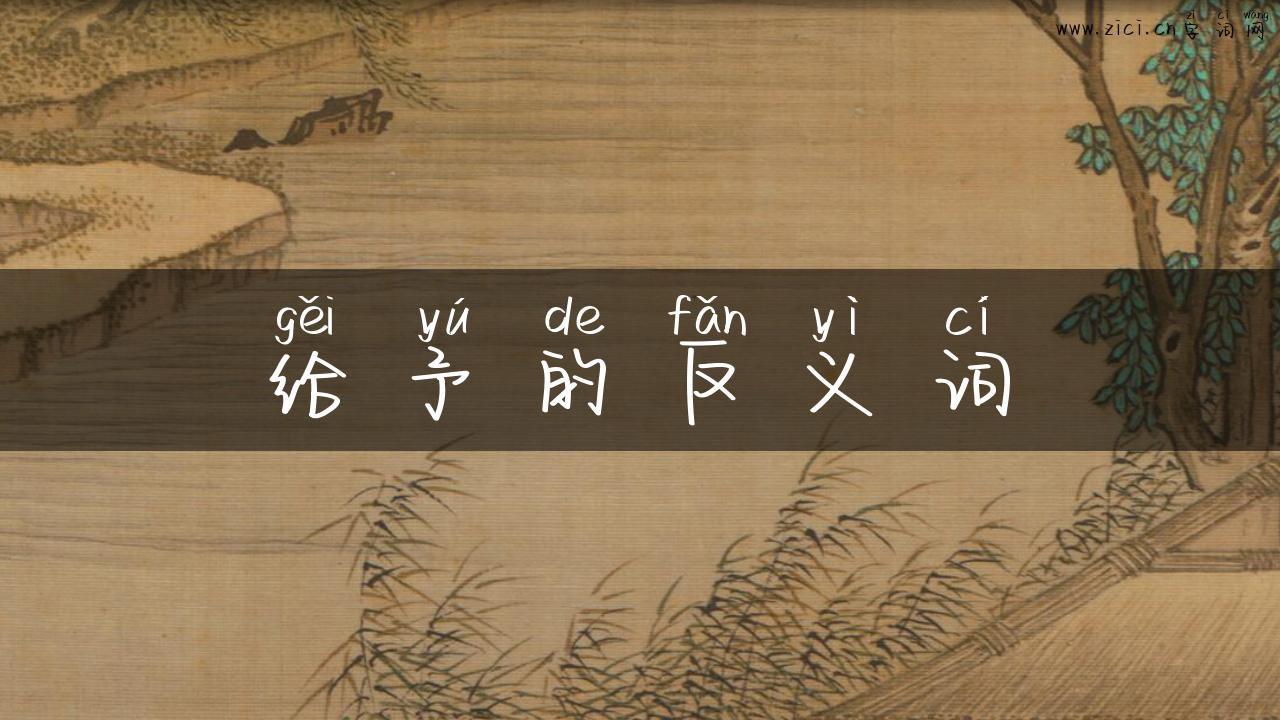 zì cí wǎng
www.zici.cn字词网
gěi yú de fǎn yì cí
给予的反义词